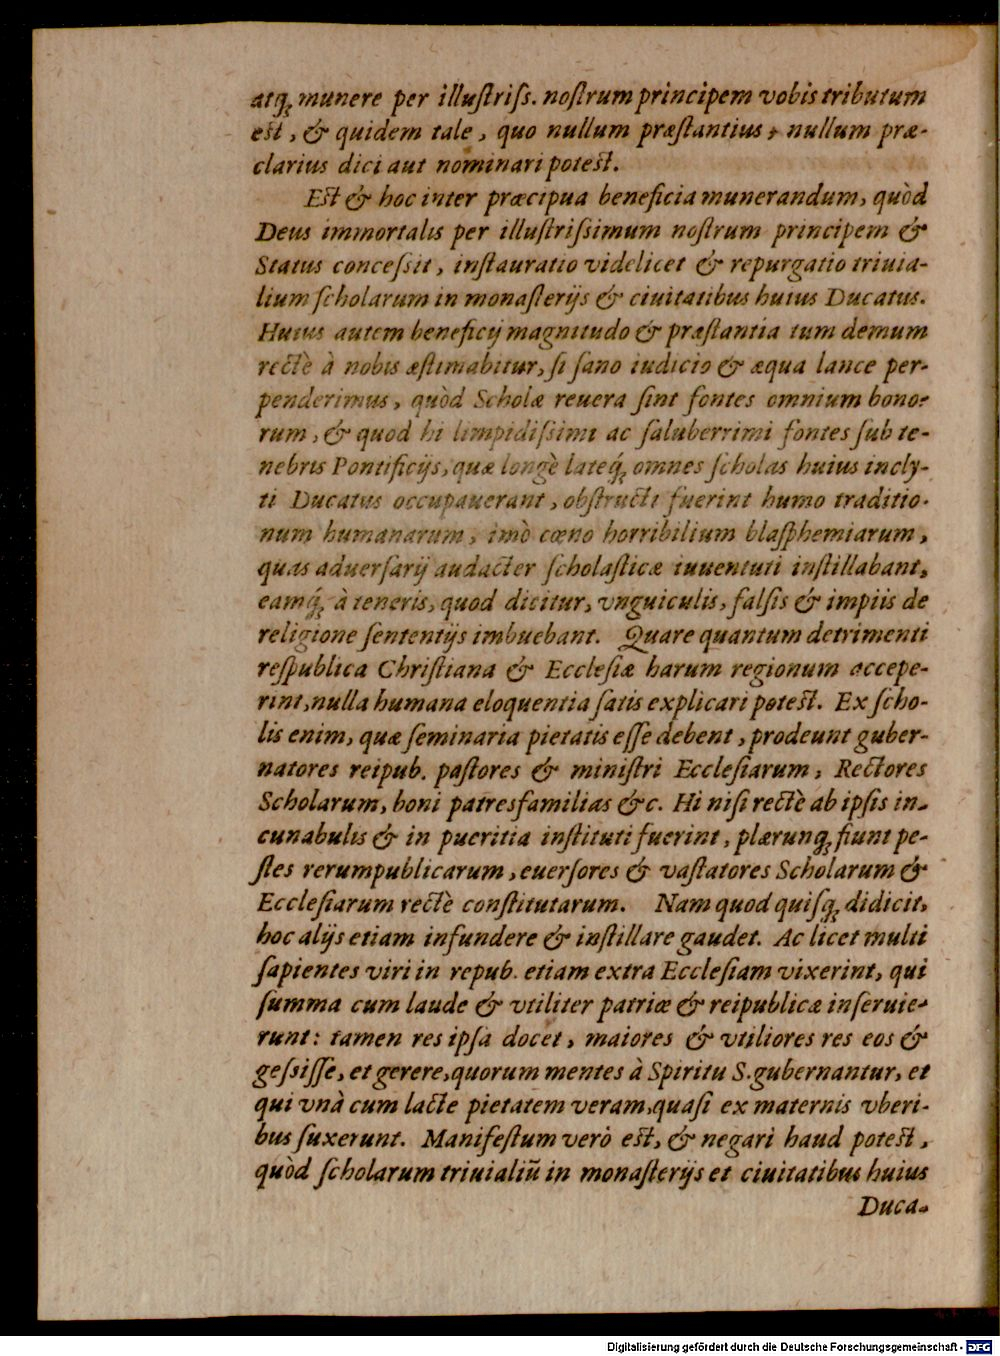 atq́; munere per illuſtriſs. noſtrum principem vobis tributum
est, & quidem tale, quo nullum præſtantius, nullum præ-
clarius dici aut nominari potest.
Est & hoc inter præcipua beneficia munerandum, quòd
Deus immortalis per illuſtriſsimum noſtrum principem &
Status conceſsit, inſtauratio videlicet & repurgatio triuia-
lium ſcholarum in monaſterijs & ciuitatibus huius Ducatus.
Huius autem beneficij magnitudo & præſtantia tum demum
rectè à nobis æſtimabitur, ſi ſano iudicio & æqua lance per-
penderimus, quòd Scholæ reuera ſint fontes omnium bono-
rum, & quod hi limpidiſsimi ac ſaluberrimi fontes ſub te-
nebris Pontificijs, quæ longè lateq́; omnes ſcholas huius incly-
ti Ducatus occupauerant, obſtructi fuerint humo traditio-
num humanarum, imò cœno horribilium blaſphemiarum,
quas aduerſarij audacter ſcholaſticæ iuuentuti inſtillabant,
eamq́; à teneris, quod dicitur, vnguiculis, falſis & impiis de
religione ſententijs imbuebant. Quare quantum detrimenti
reſpublica Chriſtiana & Eccleſiæ harum regionum accepe-
rint, nulla humana eloquentia ſatis explicari potest. Ex ſcho-
lis enim, quæ ſeminaria pietatis eſſe debent, prodeunt guber-
natores reipub. paſtores & miniſtri Eccleſiarum, Rectores
Scholarum, boni patresfamilias &c. Hi niſi rectè ab ipſis in-
cunabulis & in pueritia inſtituti fuerint, plærunq; fiunt pe-
ſtes rerumpublicarum, euerſores & vaſtatores Scholarum &
Eccleſiarum rectè conſtitutarum. Nam quod quiſq; didicit,
hoc alijs etiam infundere & inſtillare gaudet. Ac licet multi
ſapientes viri in repub. etiam extra Eccleſiam vixerint, qui
ſumma cum laude & vtiliter patriæ & reipublicæ inſeruie-
runt: tamen res ipſa docet, maiores & vtiliores res eos &
geſsiſſe, et gerere, quorum mentes à Spiritu S. gubernantur, et
qui vnà cum lacte pietatem veram, quaſi ex maternis vberi-
bus ſuxerunt. Manifeſtum verò est, & negari haud potest,
quòd ſcholarum triuialiũ in monaſterijs et ciuitatibus huius
Duca-
Digitalisierung gefördert durch die Deutsche Forschungsgemeinschaft - DFG